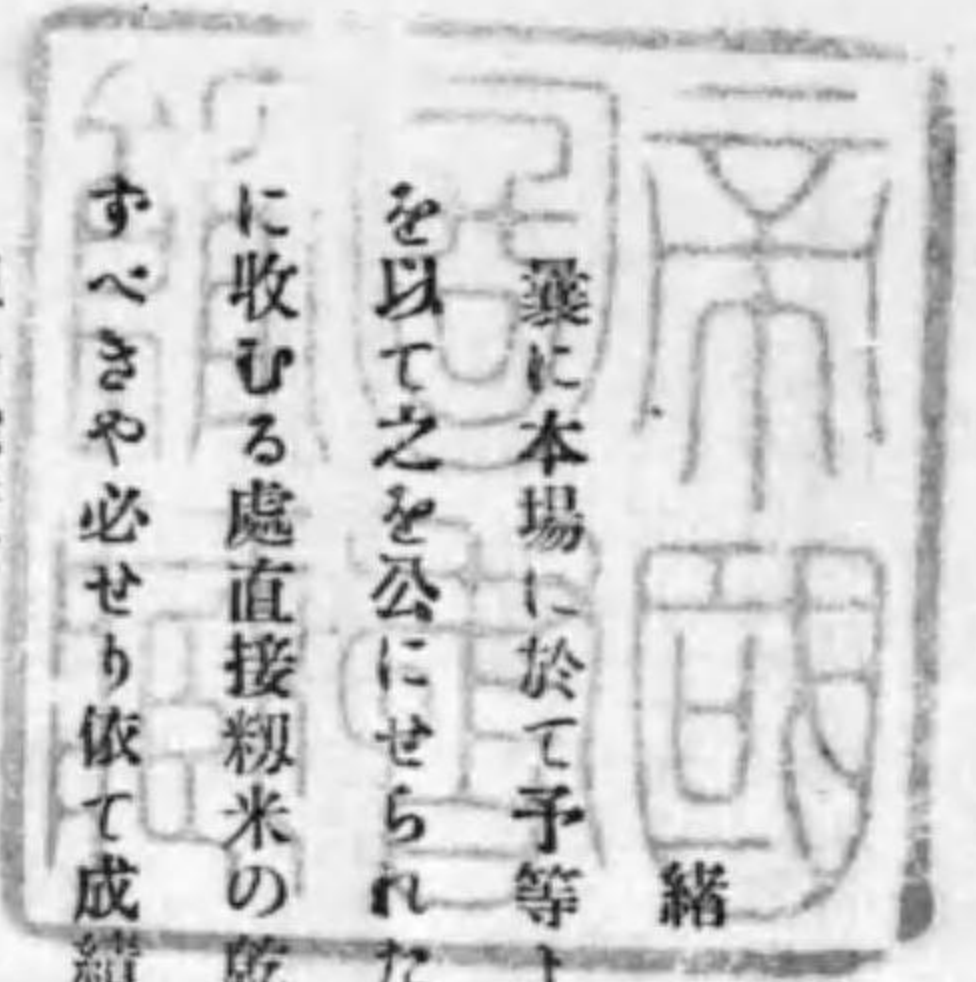 緒
曩に本場に於て予等よ
を以て之を公にせられた
に收むる處直接籾米の乾
すべきや必せり依て成績
帝國
圖書
館藏